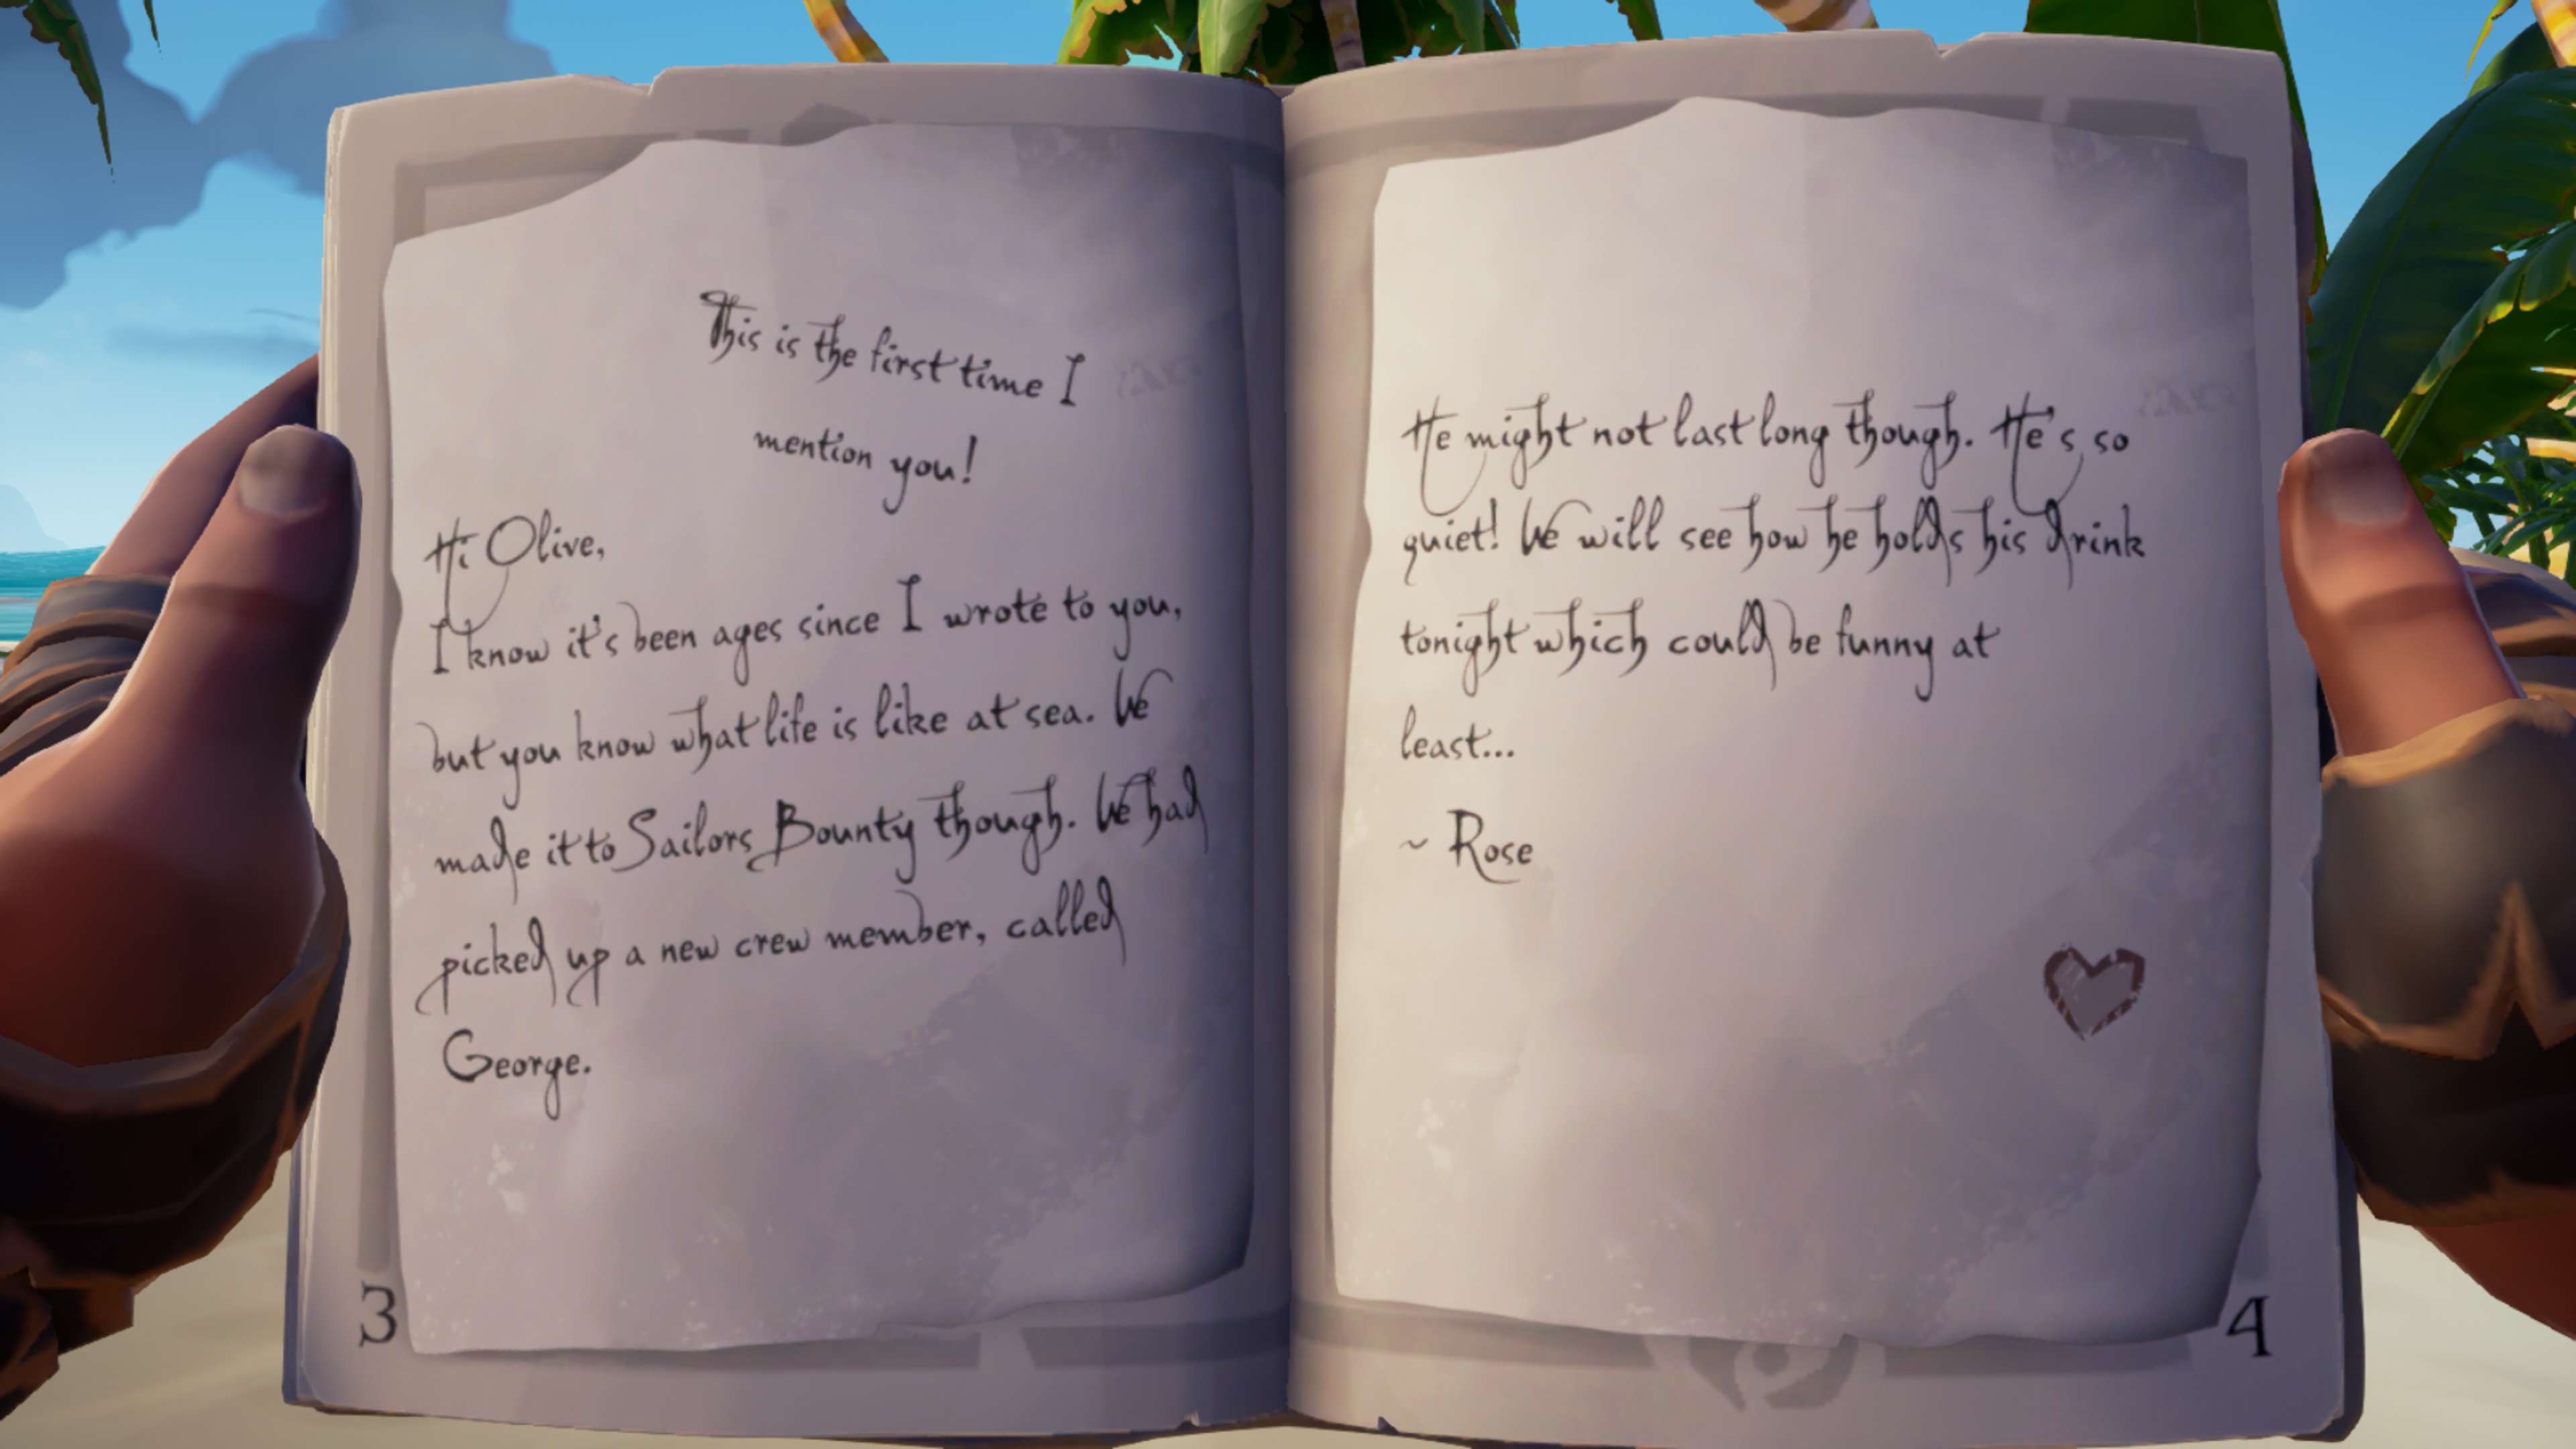 This is the first time I
mention you!
Hi Olive,
I know it's been ages since I wrote to you,
but you know what life is like at sea. We
made it to Sailors Bounty though. We had
picked up a new crew member, called
George.
3
He might not last long though. He's so
quiet! We will see how he holds his drink
tonight which could be funny at
least...
~ Rose
4